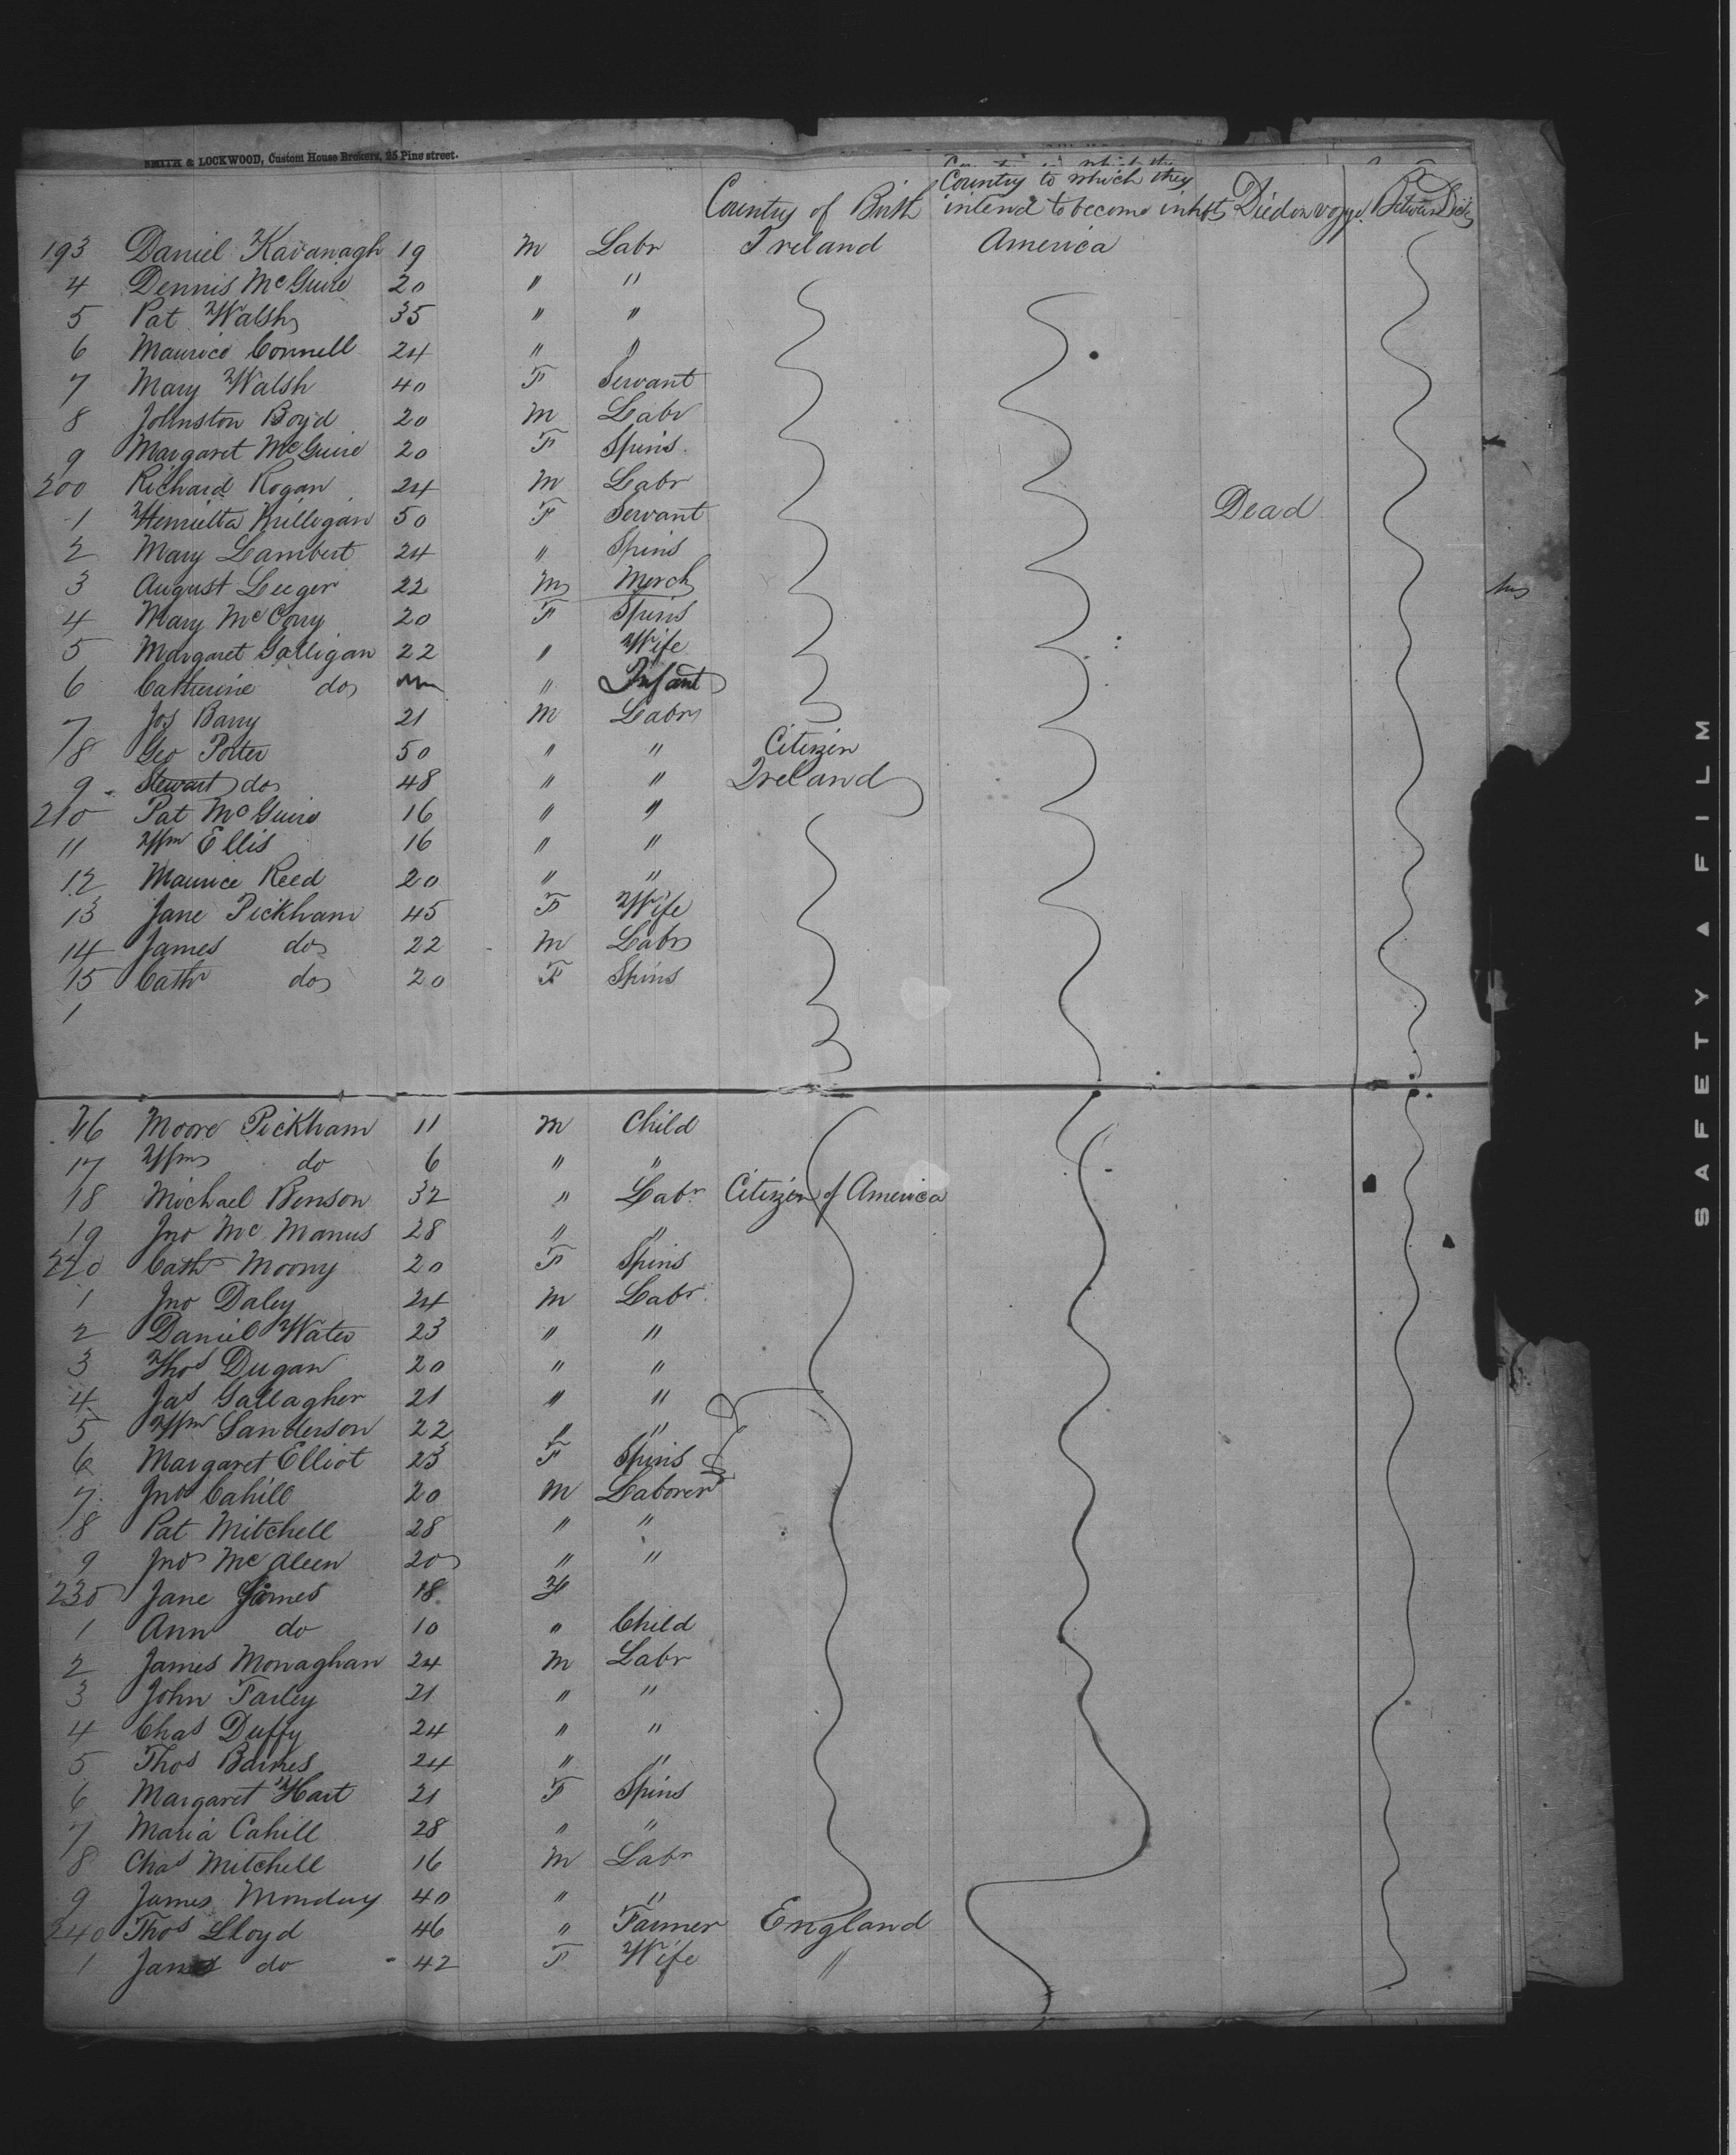 SMITH & LOCKWOOD, Custom House Brokers, 25 Pine street.
Country of Birth Country to which they intend to become inhbts Died on voyge Between Decks
193 Daniel Kavanagh 19 M Labr Ireland America
4 Dennis McGuire 20 " "
5 Pat Walsh 35 " "
6 Maurice Connell 24 " "
7 Mary Walsh 40 F Servant
8 Johnston Boyd 20 M Labr
9 Margaret McGuire 20 F Spins
200 Richard Rogan 24 M Labr
1 Henrietta Milligan 50 F Servant Dead
2 Mary Lambert 24 " Spins
3 August Leeger 22 M Merch
4 Mary McCorry 20 F Spins
5 Margaret Galligan 22 " Wife
6 Catherine do " Infant
7 Jos Barry 21 M Labr
8 Geo Porter 50 " " Citizen
9 Stewart do 48 " " Ireland
210 Pat McGuire 16 " "
11 Wm Ellis 16 " "
12 Maurice Reed 20 " "
13 Jane Pickham 45 F Wife
14 James do 22 M Labr
15 Cathr do 20 F Spins
1
16 Moore Pickham 11 M Child
17 Wm do 6 " "
18 Michael Benson 32 " Labr Citizen of America
19 Jno McManus 28 " "
220 Cath Moony 20 F Spins
1 Jno Daley 24 M Labr
2 Daniel Water 23 " "
3 Thos Dugan 20 " "
4 Jas Gallagher 21 " "
5 Wm Sanderson 22 " "
6 Margaret Elliot 23 F Spins
7 Jno Cahill 20 M Laborer
8 Pat Mitchell 28 " "
9 Jno McAleen 20 " "
230 Jane James 18 F
1 Ann do 10 " Child
2 James Monaghan 24 M Labr
3 John Farley 21 " "
4 Chas Duffy 24 " "
5 Thos Barnes 24 " "
6 Margaret Hart 21 F Spins
7 Maria Cahill 28 " "
8 Chas Mitchell 16 M Labr
9 James Monday 40 " "
240 Thos Lloyd 46 " Farmer England
1 Jane do 42 F Wife "
SAFETY ▲ FILM